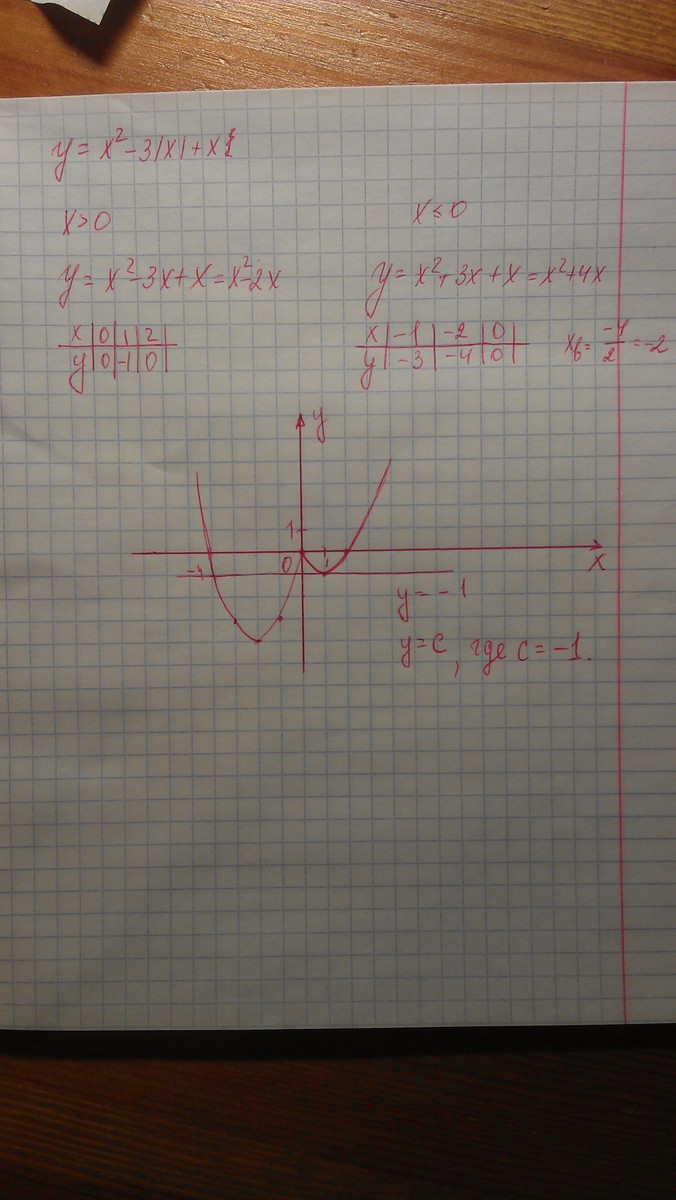 y = x² - 3|x| + x
x > 0
y = x² - 3x + x = x² - 2x
x | 0 | 1 | 2
y | 0 | -1 | 0
x ≤ 0
y = x² + 3x + x = x² + 4x
x | -1 | -2 | 0
y | -3 | -4 | 0
x₆ = -4/2 = -2
y
1
0
1
x
-4
y = -1
y = c, где c = -1.